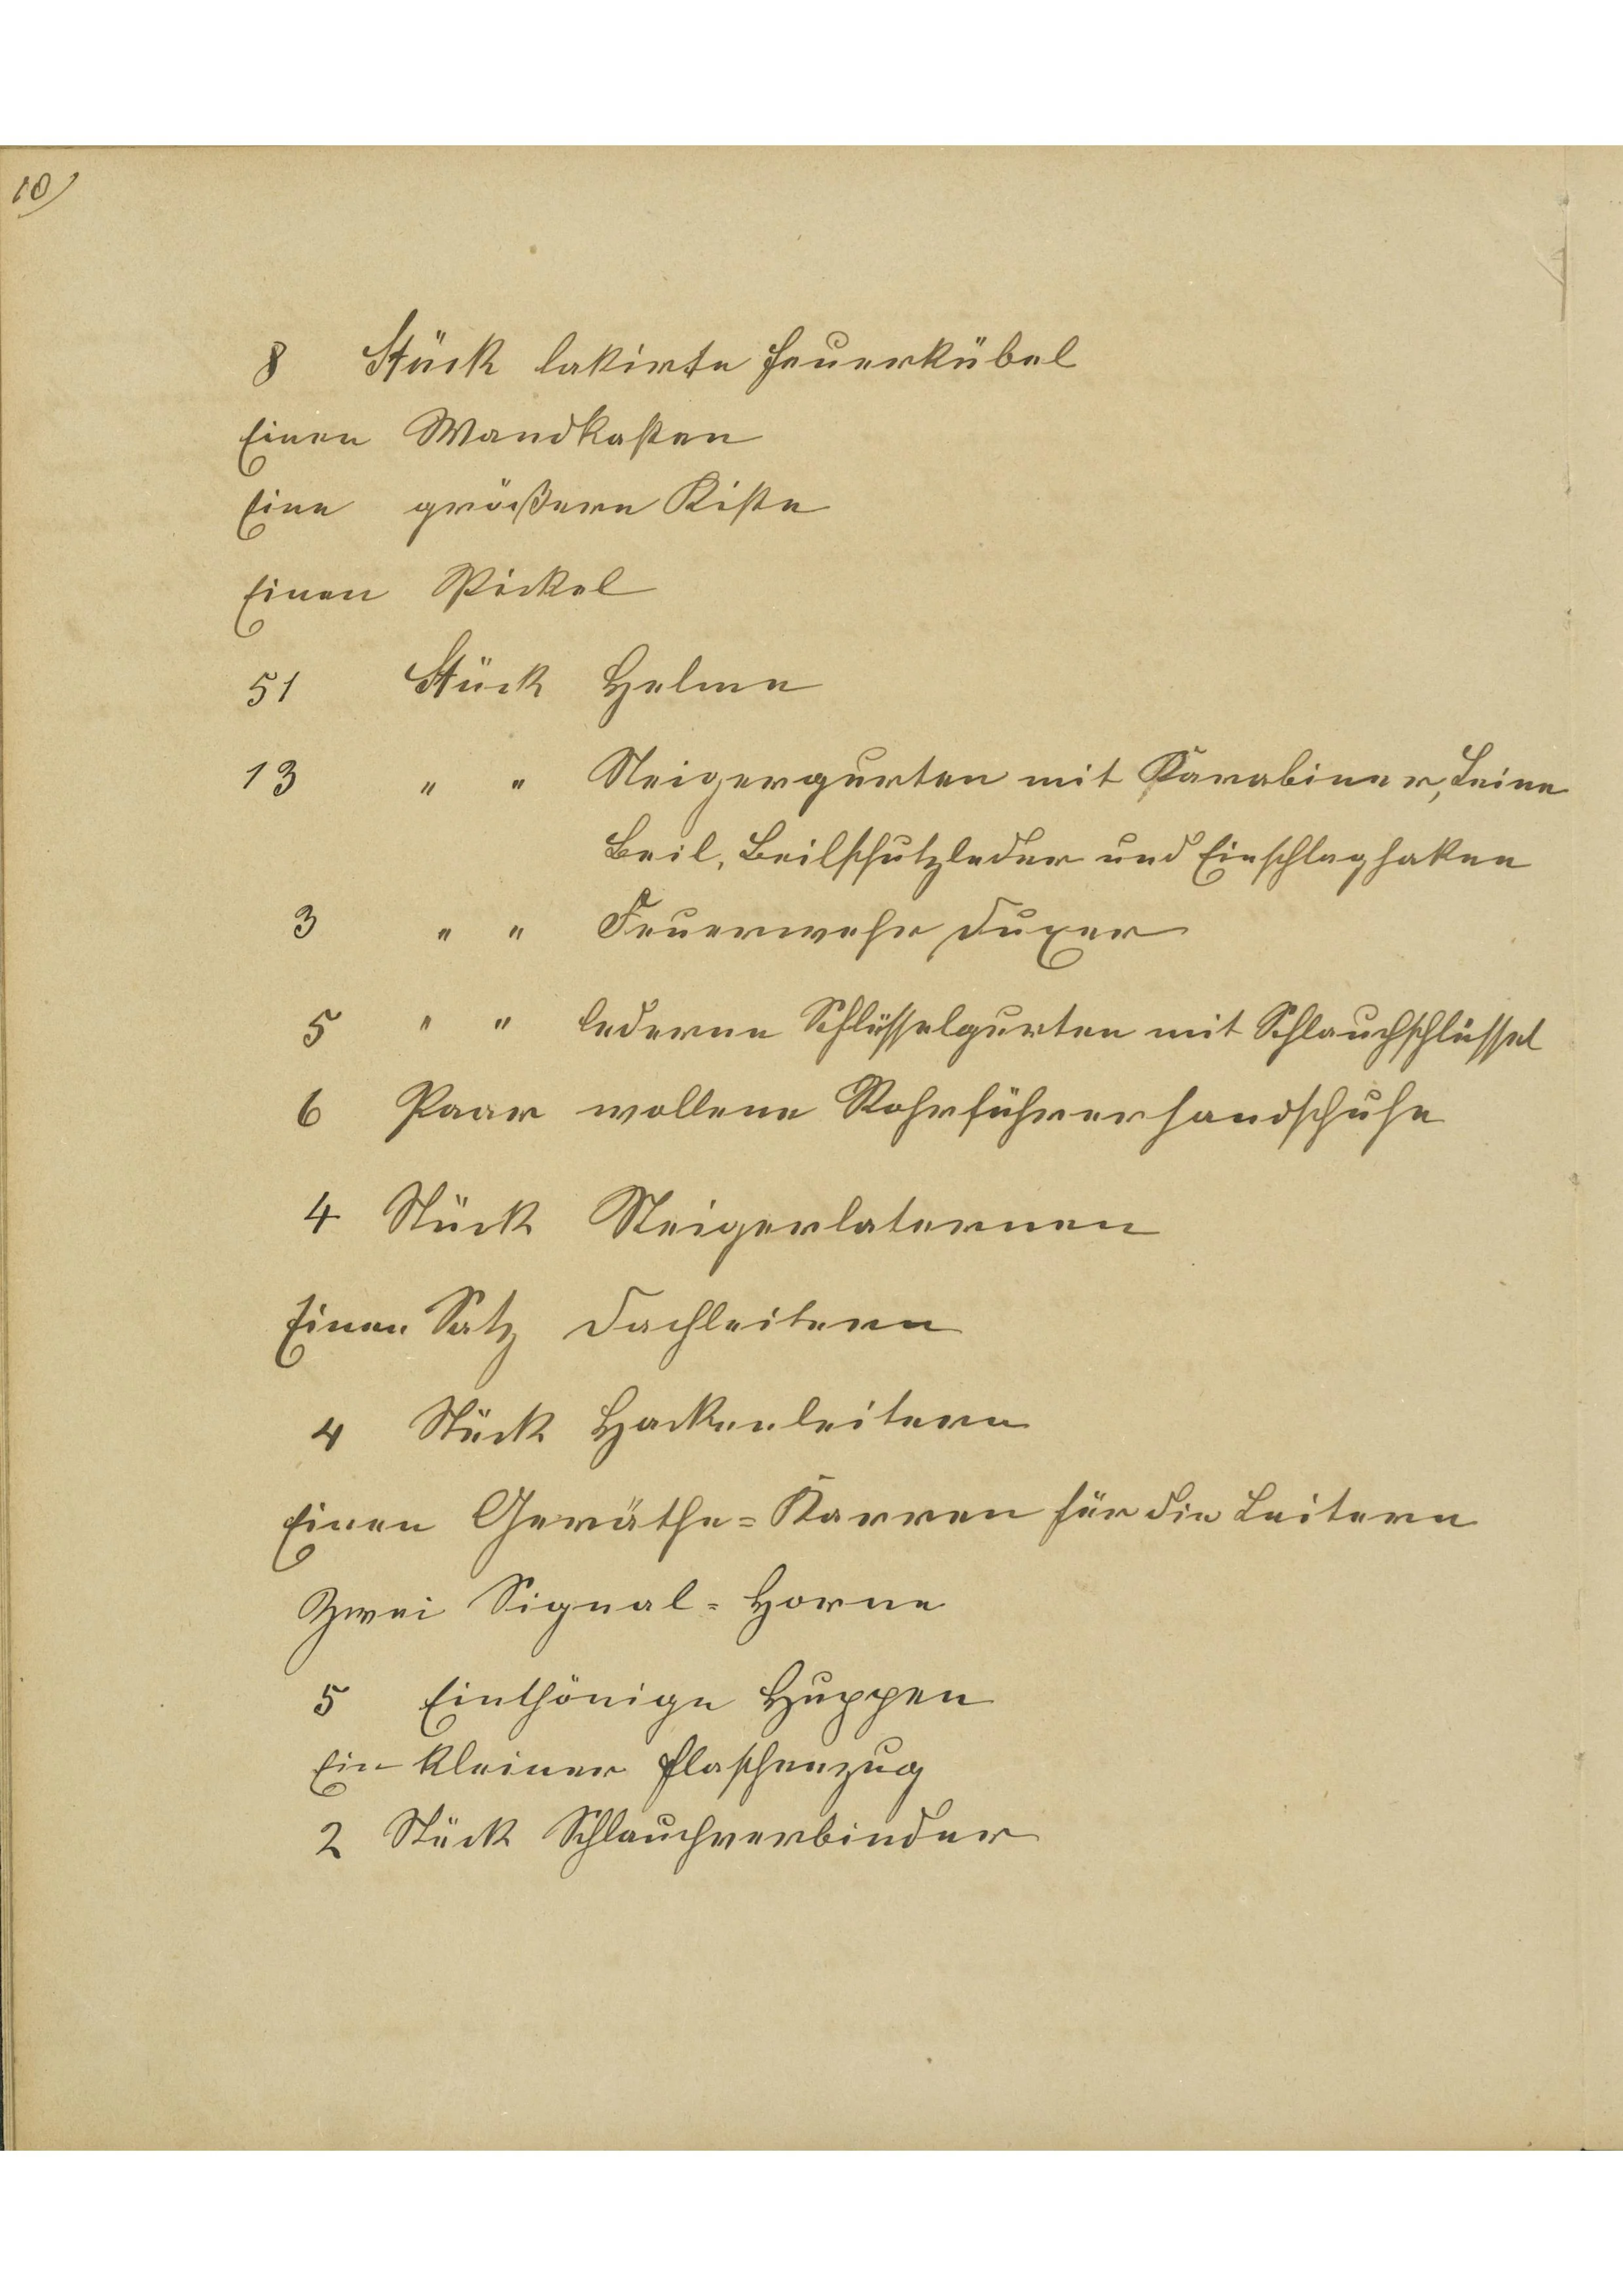 10)
8 Stück lakirte Feuerkübel
Einen Wandkasten
Eine größere Kiste
Einen Pickel
51 Stück Helme
13 " " Steigergurten mit Karabiner, Leine
Beil, Beilschutzleder und Einschlaghaken
3 " " Feuerwehr Duxer
5 " " lederne Schlüsselgurten mit Schlauchschlüssel
6 Paar wollene Rohrführerhandschuhe
4 Stück Steigerlaternen
Einen Satz Dachleitern
4 Stück Hackenleitern
Einen Geräthe=Karren für die Leitern
Zwei Signal=Horne
5 Einthönige Huppen
Ein kleiner Flaschenzug
2 Stück Schlauchverbinder